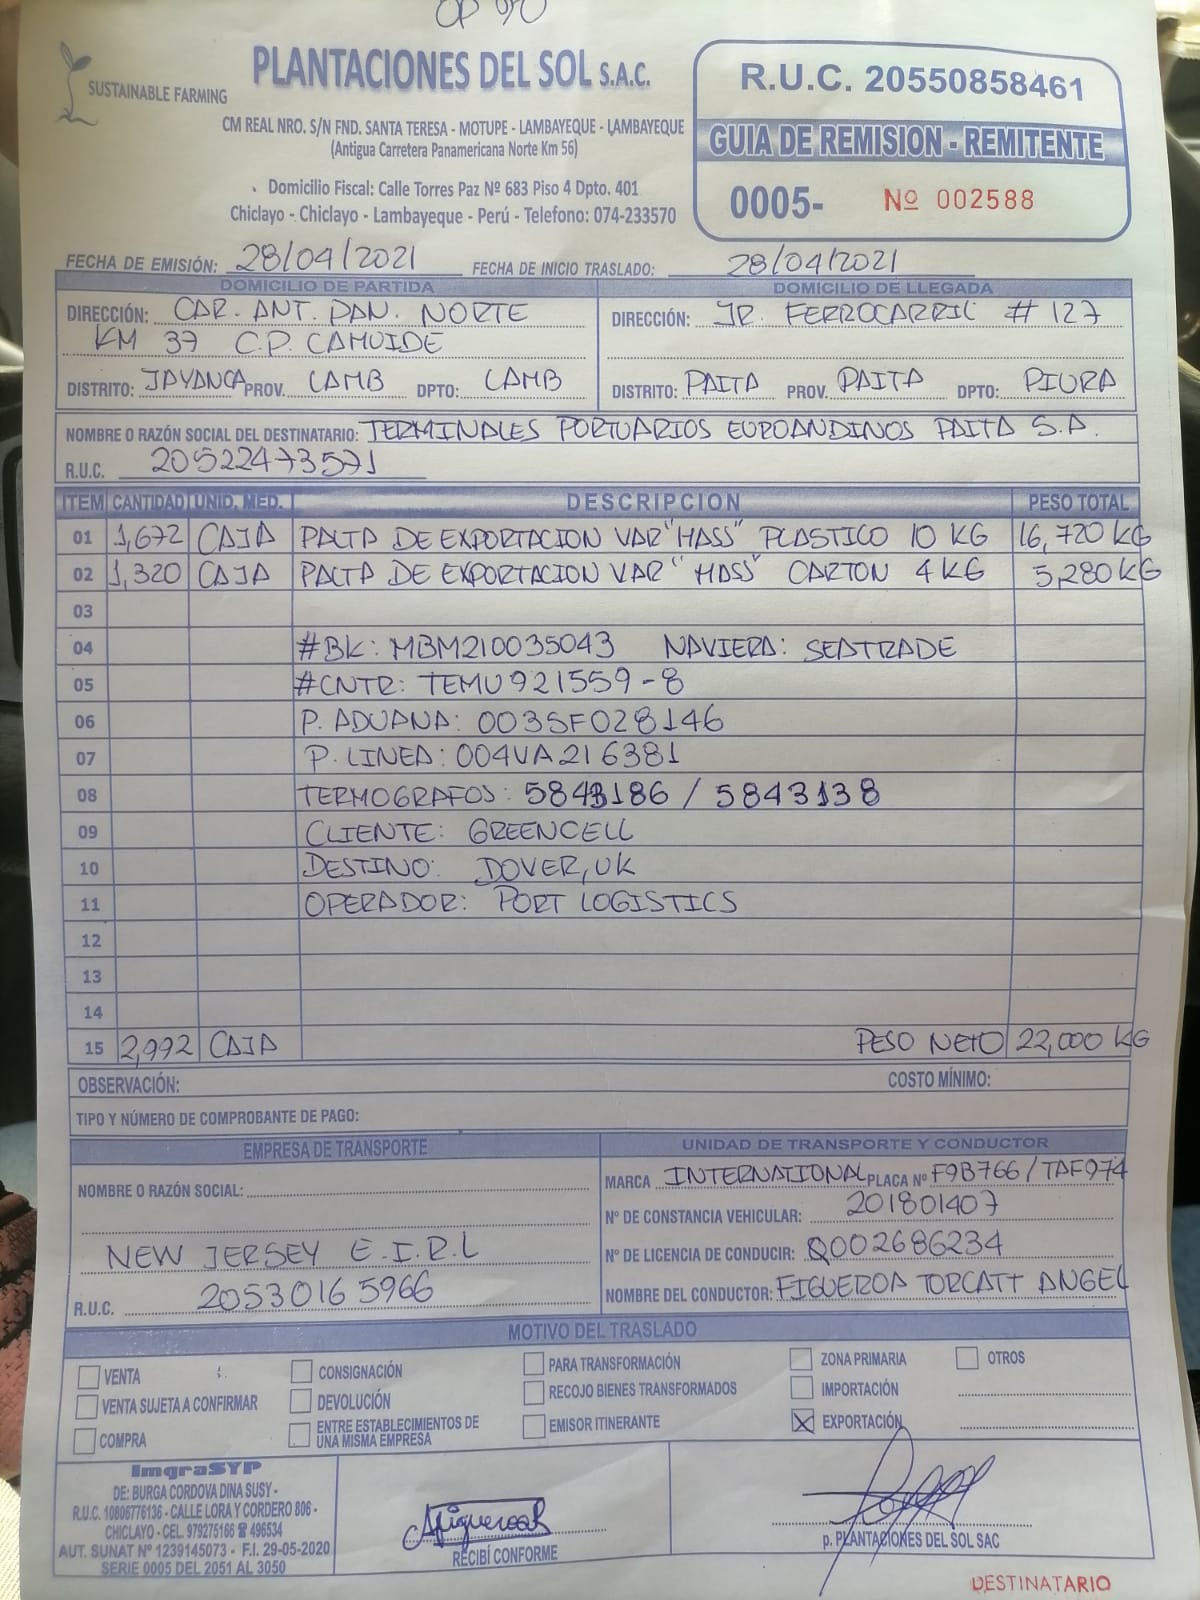 OP 90
SUSTAINABLE FARMING
PLANTACIONES DEL SOL S.A.C.
CM REAL NRO. S/N FND. SANTA TERESA - MOTUPE - LAMBAYEQUE - LAMBAYEQUE
(Antigua Carretera Panamericana Norte Km 56)
Domicilio Fiscal: Calle Torres Paz Nº 683 Piso 4 Dpto. 401
Chiclayo - Chiclayo - Lambayeque - Perú - Telefono: 074-233570
R.U.C. 20550858461
GUIA DE REMISION - REMITENTE
0005- Nº 002588
FECHA DE EMISIÓN: 28/04/2021 FECHA DE INICIO TRASLADO: 28/04/2021
DOMICILIO DE PARTIDA
DIRECCIÓN: CAR. ANT. PAN. NORTE
KM 37 C.P. CAHUIDE
DISTRITO: JAYANCA PROV. LAMB DPTO: LAMB
DOMICILIO DE LLEGADA
DIRECCIÓN: JR. FERROCARRIL # 127
DISTRITO: PAITA PROV. PAITA DPTO: PIURA
NOMBRE O RAZÓN SOCIAL DEL DESTINATARIO: TERMINALES PORTUARIOS EUROANDINOS PAITA S.A.
R.U.C. 20522473571
ITEM CANTIDAD UNID. MED. DESCRIPCION PESO TOTAL
01 1,672 CAJA PALTA DE EXPORTACION VAR "HASS" PLASTICO 10 KG 16,720 KG
02 1,320 CAJA PALTA DE EXPORTACION VAR "HASS" CARTON 4 KG 5,280 KG
03
04 #BK: MBM210035043 NAVIERA: SEATRADE
05 #CNTR: TEMU921559-8
06 P. ADUANA: 003SF028146
07 P. LINEA: 004VA216381
08 TERMOGRAFOS: 5843186 / 5843138
09 CLIENTE: GREENCELL
10 DESTINO: DOVER, UK
11 OPERADOR: PORT LOGISTICS
12
13
14
15 2,992 CAJA PESO NETO 22,000 KG
OBSERVACIÓN: COSTO MÍNIMO:
TIPO Y NÚMERO DE COMPROBANTE DE PAGO:
EMPRESA DE TRANSPORTE
NOMBRE O RAZÓN SOCIAL:
NEW JERSEY E.I.R.L
R.U.C. 20530165966
UNIDAD DE TRANSPORTE Y CONDUCTOR
MARCA INTERNATIONAL PLACA Nº F9B766 / TAF974
Nº DE CONSTANCIA VEHICULAR: 201801407
Nº DE LICENCIA DE CONDUCIR: Q002686234
NOMBRE DEL CONDUCTOR: FIGUEROA TORCATT ANGEL
MOTIVO DEL TRASLADO
VENTA
VENTA SUJETA A CONFIRMAR
COMPRA
CONSIGNACIÓN
DEVOLUCIÓN
ENTRE ESTABLECIMIENTOS DE
UNA MISMA EMPRESA
PARA TRANSFORMACIÓN
RECOJO BIENES TRANSFORMADOS
EMISOR ITINERANTE
ZONA PRIMARIA
IMPORTACIÓN
EXPORTACIÓN
OTROS
ImgraSYP
DE: BURGA CORDOVA DINA SUSY -
R.U.C. 10806776136 - CALLE LORA Y CORDERO 806 -
CHICLAYO - CEL. 979275166 ☎ 496534
AUT. SUNAT Nº 1239145073 - F.I. 29-05-2020
SERIE 0005 DEL 2051 AL 3050
RECIBÍ CONFORME
p. PLANTACIONES DEL SOL SAC
DESTINATARIO